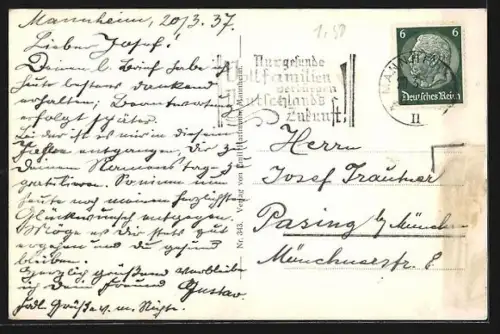 Mannheim, 20/3. 37.
Lieber Josef!
Deinen l. Brief habe ich
heute bestens dankend
erhalten, Beantwortung
erfolgt später.
Leider ist es mir in diesem
entgangen, Dir zu
Deinem Namenstage zu
gratulieren. So nimm nun
heute noch meinen herzlichsten
Glückwunsch entgegen.
Möge es Dir stets gut
ergehen und Du gesund
bleiben.
Herzlich grüßend verbleibe
ich Dein Freund Gustav.
Grüße v. m. Nichte.
Nr. 343. Verlag von
1,50
Nur gesunde
Vollfamilien
verbürgen
Deutschlands
Zukunft!
MANNHEIM
II
6 6
Deutsches Reich
Herrn
Josef Trautner
Pasing b/ München
Münchnerstr. 8